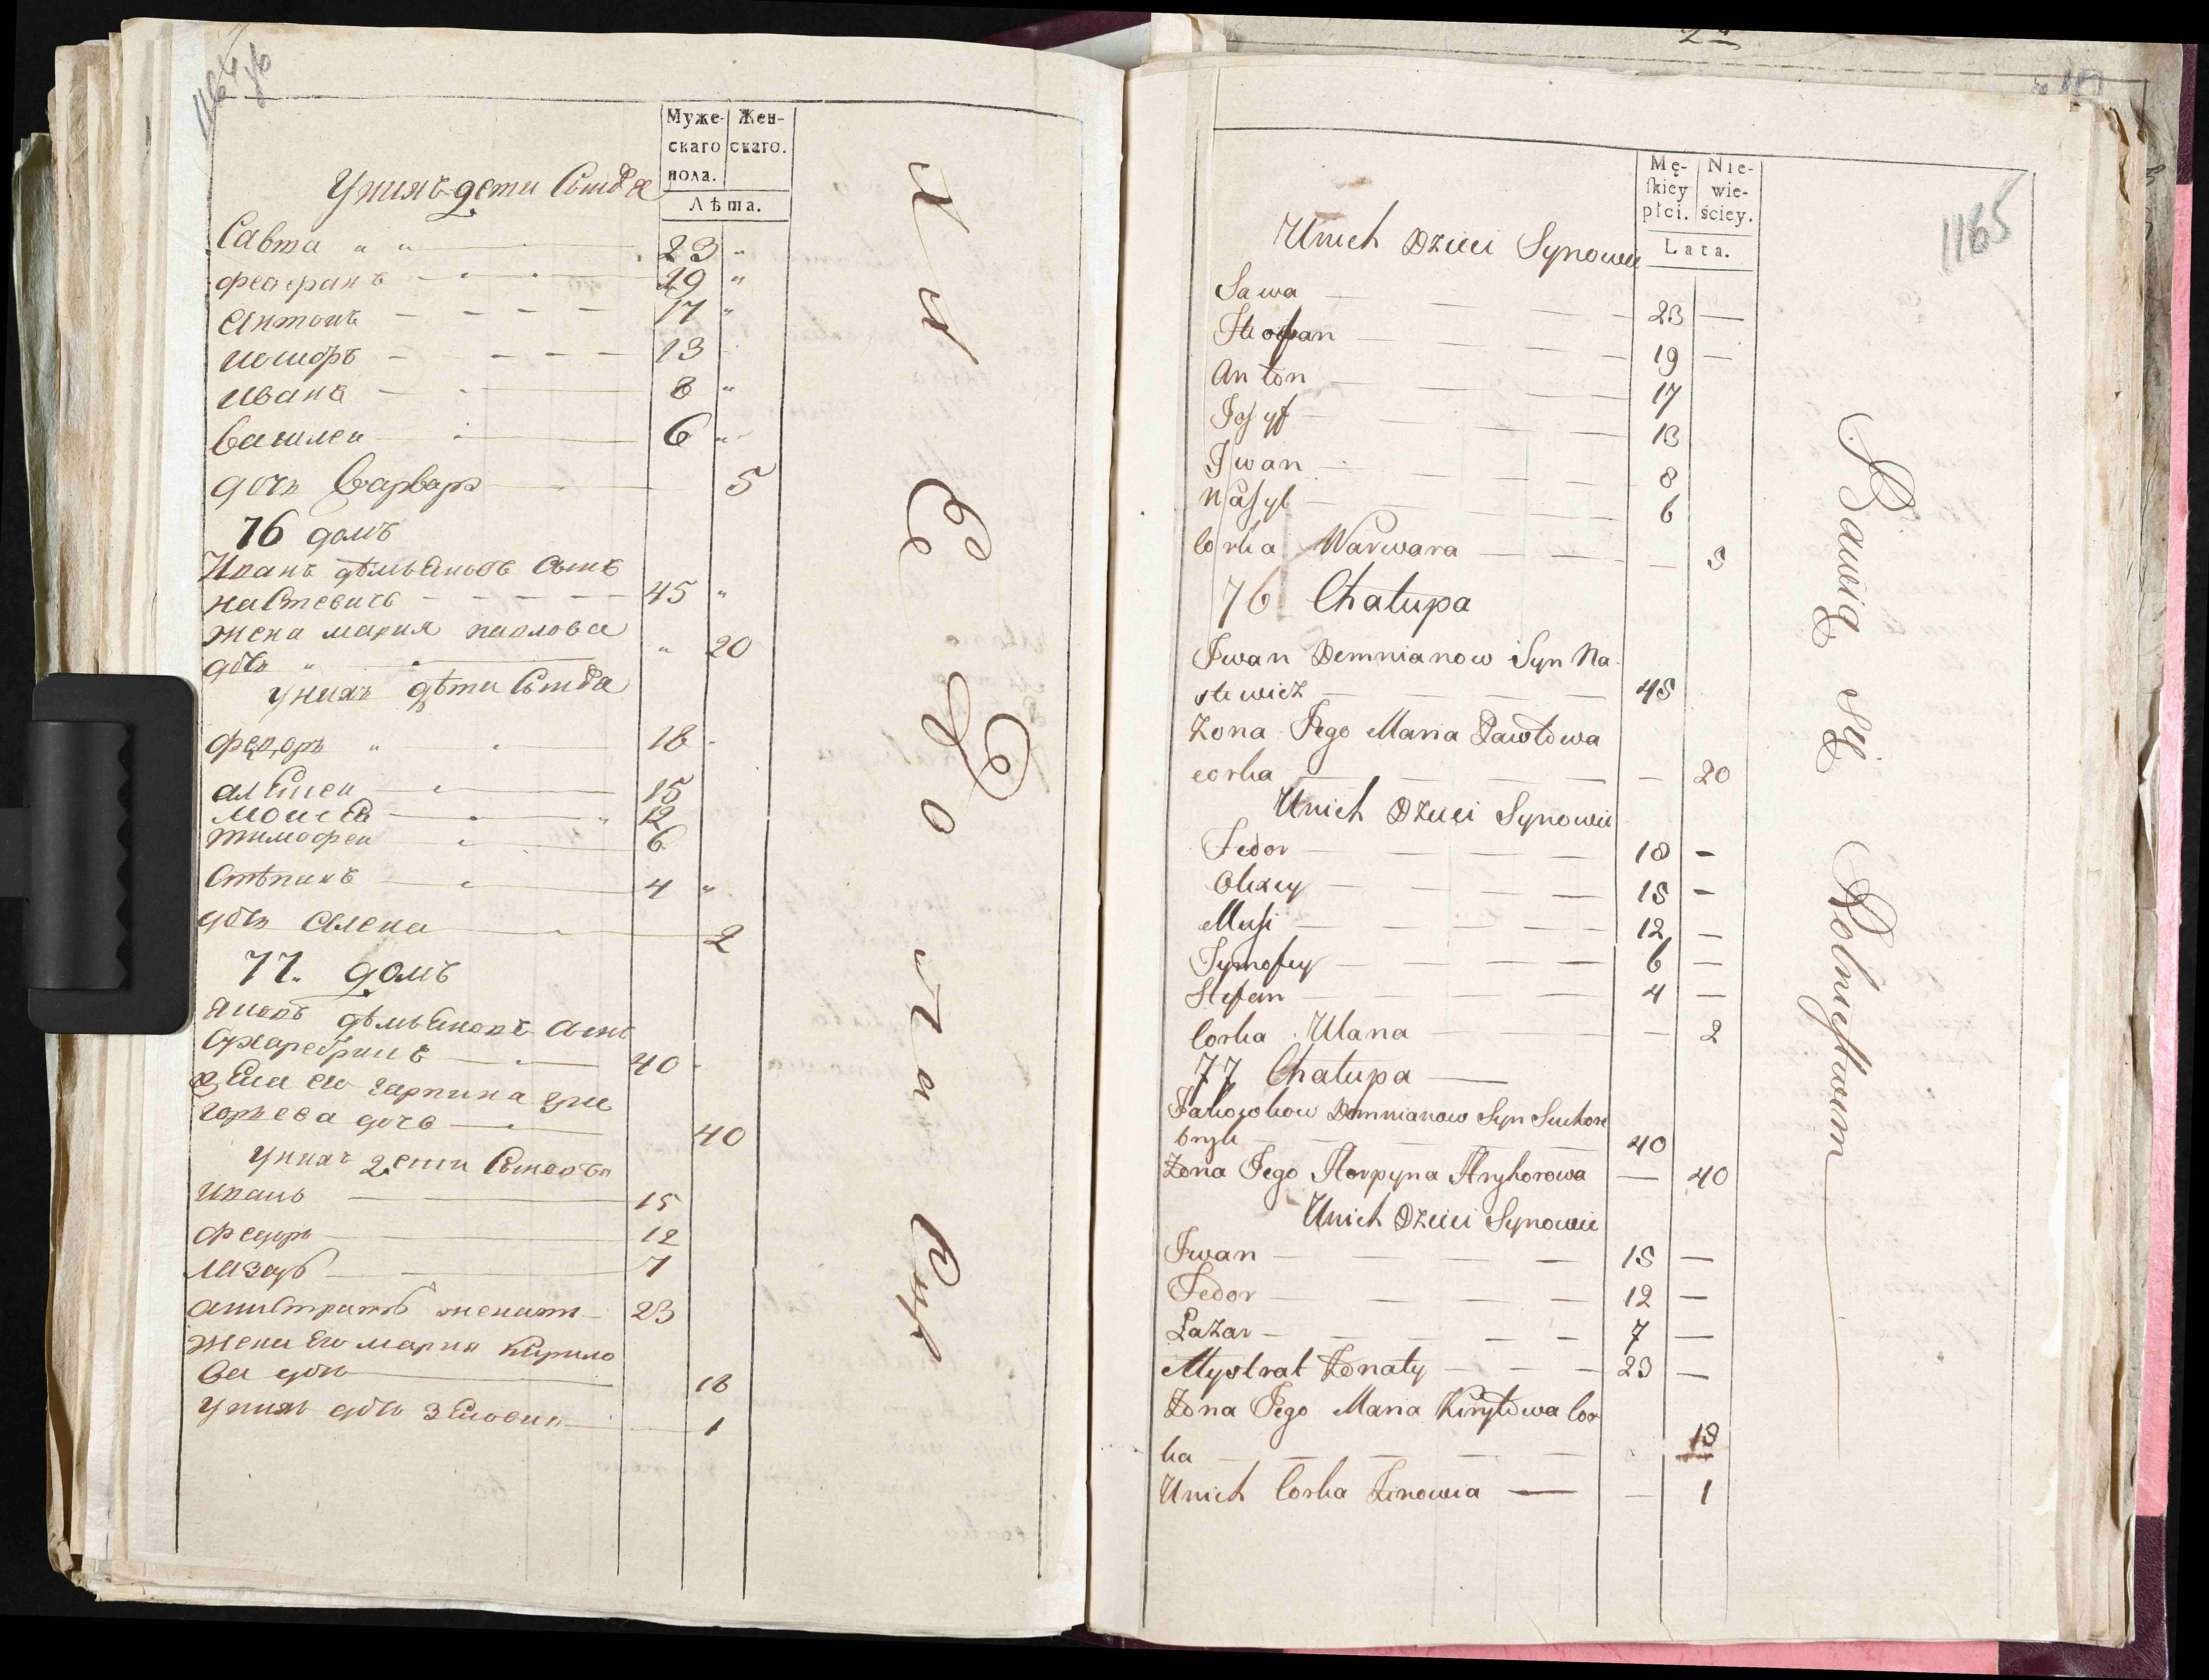 1164 об
Муже- Жен-
скаго скаго.
пола.
Лѣта.
Унихъ дети Сынъва
Савта " " 23 "
феофанъ 19 "
Антонъ 17 "
иосифъ 13
иванъ 8 "
василеи 6 "
дочь варвара 5
76 домъ
Иванъ дѣмьяновъ сынъ
настевичъ 45 "
жена мария павлова
дочь " " 20
унихъ дѣти сынъва
федоръ " 18
алексеи 15
моисеи 12
тимофеи 6
стѣпанъ 4 "
дочь олена 2
77. домъ
яковъ дѣмьяновъ сынъ
сухаребрии 40
жена его гарпина гри
горьева дочь 40
унихъ дети сыновья
иванъ 15
федоръ 12
лазаръ 7
анистратъ женатъ 23
жена его мария кирило
ва дочь 18
унихъ дочь зеновия 1
Х Л Е Б о п а ш
1165
Mę- Nie-
skiey wie-
płci. ściey.
Lata.
Unich Dzieci Synowie
Sawa 23 —
Steofan 19 —
Anton 17
Josyf 13
Iwan 8
Wasyl 6
Corka Warwara — 5
76 Chałupa
Iwan Demnianow Syn Na-
stewicz 45
Żona Jego Maria Pawłowa
corka — 20
Unich Dzieci Synowie
Fedor 18 —
Olexey 15 —
Musi 12 —
Tymofey 6 —
Stefan 4 —
Corka Ulana — 2
77 Chałupa —
Jakow Demnianow Syn Suchore
bryi 40
Żona Jego Horpyna Hryhorowa — 40
Unich Dzieci Synowie
Iwan 15 —
Fedor 12 —
Łazar 7 —
Mystrat Żonaty 23 —
Żona Jego Maria Kiryłowa Cor
ka 18
Unich Corka Zinowia — 1
Bawią się Rolnistwem